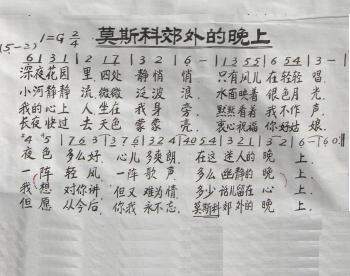 莫斯科郊外的晚上
(5-2) 1=G 2/4
6131|217|32|6-|1355|654|3-|
深夜花园里四处静悄悄 只有风儿在轻轻唱.
小河静静流微微泛波浪, 水面映着银色月光.
我的心上人坐在我身旁 默默看着我不作声
长夜快过去天色蒙蒙亮, 衷心祝福你好姑娘.
夜色多么好, 心儿多爽朗, 在这迷人的晚上.
一阵轻风, 一阵歌声, 多么幽静的晚上.
我想对你讲, 但又难为情, 多少话儿留在心上.
但愿从今后, 你我永不忘, 莫斯科郊外的晚上.